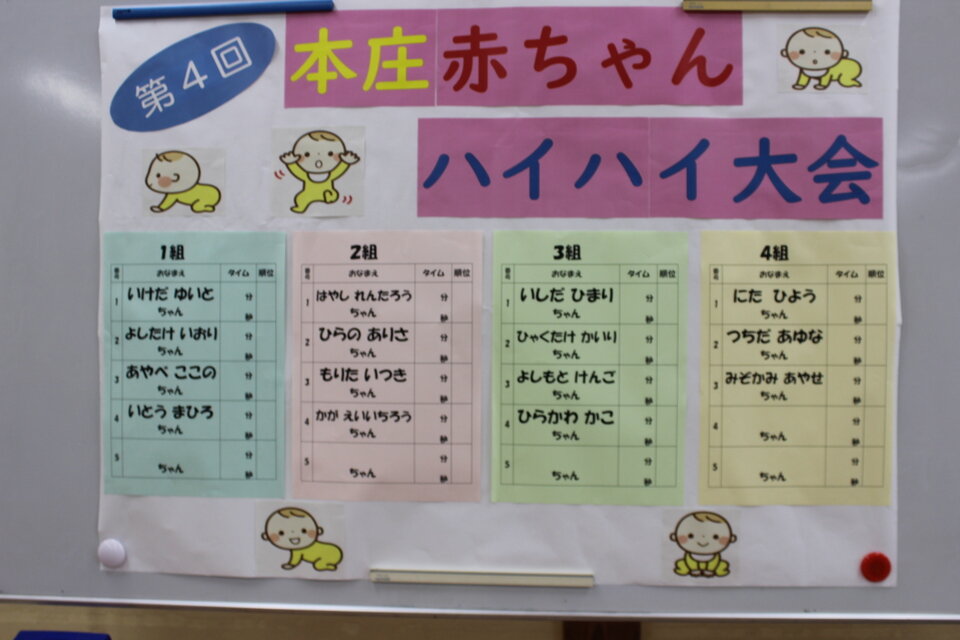 第4回
本庄赤ちゃん
ハイハイ大会
1組
番号 おなまえ タイム 順位
1 いけだ ゆいと ちゃん 分 秒
2 よしたけ いおり ちゃん 分 秒
3 あやべ ここの ちゃん 分 秒
4 いとう まひろ ちゃん 分 秒
5 ちゃん 分 秒
2組
番号 おなまえ タイム 順位
1 はやし れんたろう ちゃん 分 秒
2 ひらの ありさ ちゃん 分 秒
3 もりた いつき ちゃん 分 秒
4 かが えいいちろう ちゃん 分 秒
5 ちゃん 分 秒
3組
番号 おなまえ タイム 順位
1 いしだ ひまり ちゃん 分 秒
2 ひゃくたけ かいり ちゃん 分 秒
3 よしもと けんご ちゃん 分 秒
4 ひらかわ かこ ちゃん 分 秒
5 ちゃん 分 秒
4組
番号 おなまえ タイム 順位
1 にた ひよう ちゃん 分 秒
2 つちだ あゆな ちゃん 分 秒
3 みぞかみ あやせ ちゃん 分 秒
4 ちゃん 分 秒
5 ちゃん 分 秒